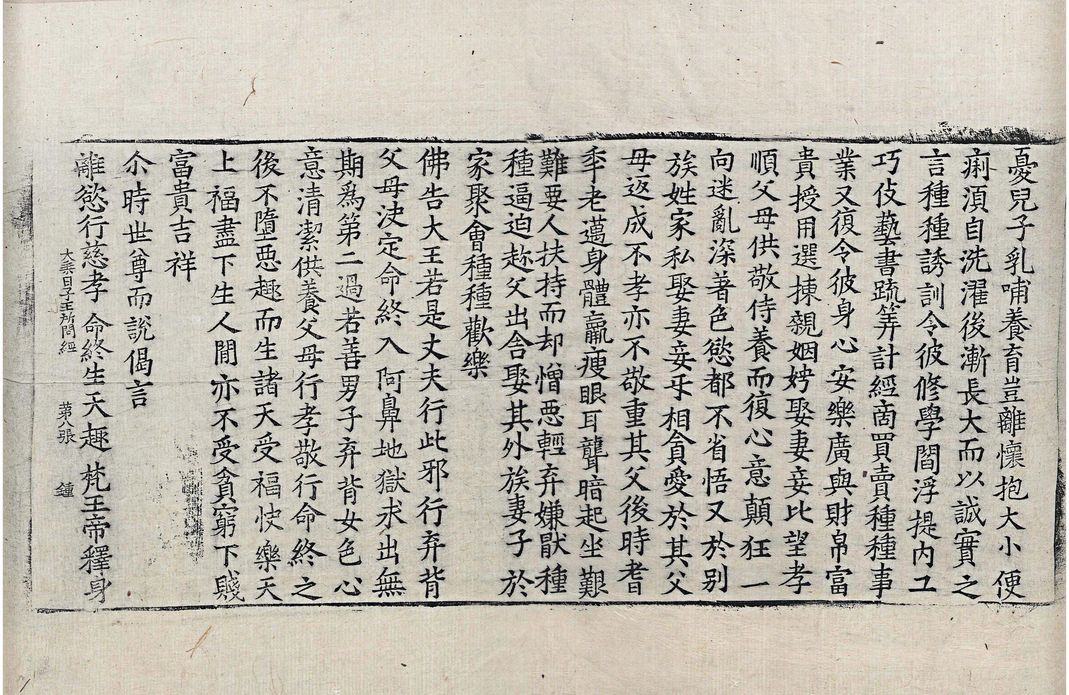 憂兒子乳哺養育豈離懷抱大小便
痢湏自洗濯後漸長大而以誠實之
言種種誘訓令彼修學閻浮提内工
巧伎藝書䟽筭計經啇買賣種種事
業又復令彼身心安樂廣與財帛富
貴授用選揀親姻娉娶妻妾比望孝
順父母供敬侍養而復心意顛狂一
向迷亂深著色慾都不省悟又於别
族姓家私娶妻妾㸦相貪愛於其父
母返成不孝亦不敬重其父後時耆
年老邁身體羸瘦眼耳聾暗起坐艱
難要人扶持而却憎惡輕弃嫌猒種
種逼迫趂父出舎娶其外族妻子於
家聚會種種歡樂
佛告大王若是丈夫行此邪行弃背
父母决定命終入阿鼻地獄求出無
期爲第二過若善男子弃背女色心
意清潔供養父母行孝敬行命終之
後不墮惡趣而生諸天受福快樂天
上福盡下生人間亦不受貧窮下賤
富貴吉祥
尒時世尊而說偈言
離慾行慈孝 命終生天趣 梵王帝釋身
大乘日子王所問經 第八張 鍾